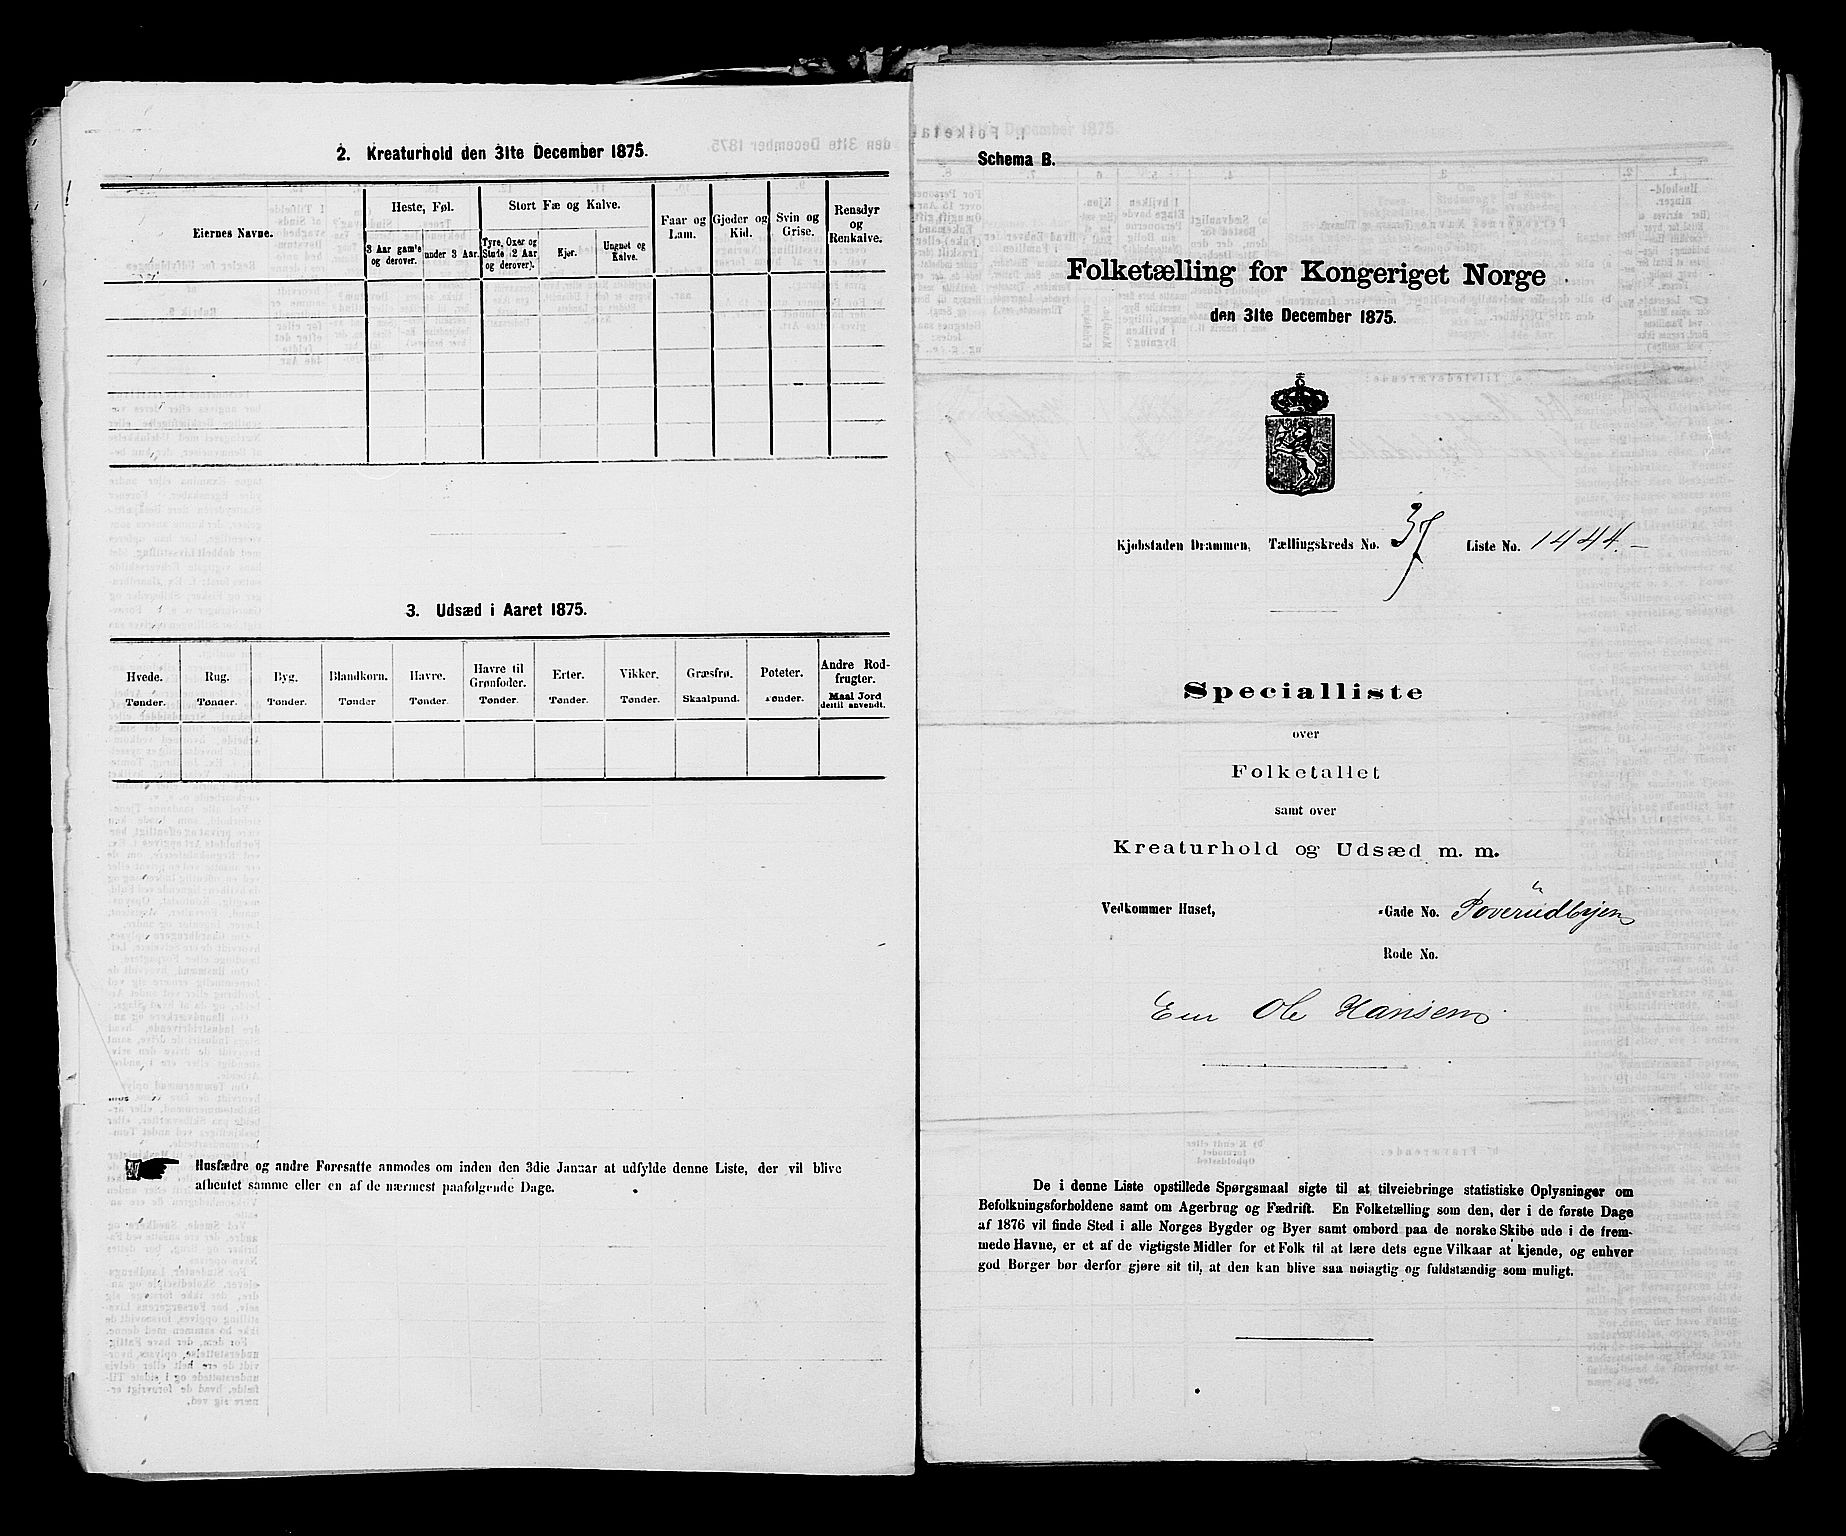 2. Kreaturhold den 31te December 1875.
Eiernes Navne.
Heste, Føl.
3 Aar gamle og derover.
under 3 Aar.
Stort Fæ og Kalve.
Tyre, Oxer og Stude (2 Aar og derover).
Kjør.
Ungnøt og Kalve.
Faar og Lam.
Gjeder og Kid.
Svin og Grise.
Rensdyr og Renkalve.
3. Udsæd i Aaret 1875.
Hvede. Tønder.
Rug. Tønder.
Byg. Tønder.
Blandkorn. Tønder
Havre. Tønder.
Havre til Grønfoder. Tønder.
Erter. Tønder.
Vikker. Tønder.
Græsfrø. Skaalpund.
Poteter. Tønder.
Andre Rodfrugter. Maal Jord dertil anvendt.
Husfædre og andre Foresatte anmodes om inden den 3die Januar at udfylde denne Liste, der vil blive
afhentet samme eller en af de nærmest paafølgende Dage.
Schema B.
Folketælling for Kongeriget Norge
den 31te December 1875.
Kjøbstaden Drammen, Tællingskreds No. 37 Liste No. 1444.
Specialliste
over
Folketallet
samt over
Kreaturhold og Udsæd m. m.
Vedkommer Huset, -Gade No. Toverüdbyen
Rode No.
Eier Ole Hansen
De i denne Liste opstillede Spørgsmaal sigte til at tilveiebringe statistiske Oplysninger om
Befolkningsforholdene samt om Agerbrug og Fædrift. En Folketælling som den, der i de første Dage
af 1876 vil finde Sted i alle Norges Bygder og Byer samt ombord paa de norske Skibe ude i de frem-
mede Havne, er et af de vigtigste Midler for et Folk til at lære dets egne Vilkaar at kjende, og enhver
god Borger bør derfor gjøre sit til, at den kan blive saa nøiagtig og fuldstændig som muligt.